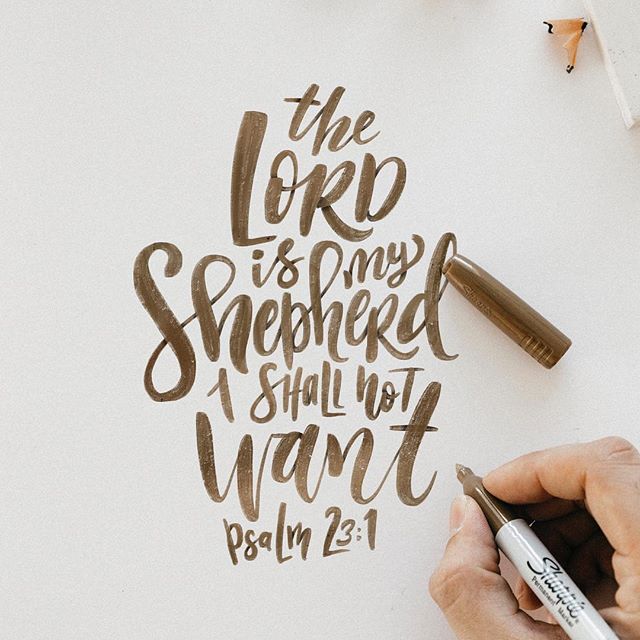 the
LORD
is my
Shepherd
I SHALL NOT
want
psalm 23:1
Sharpie
Permanent Marker